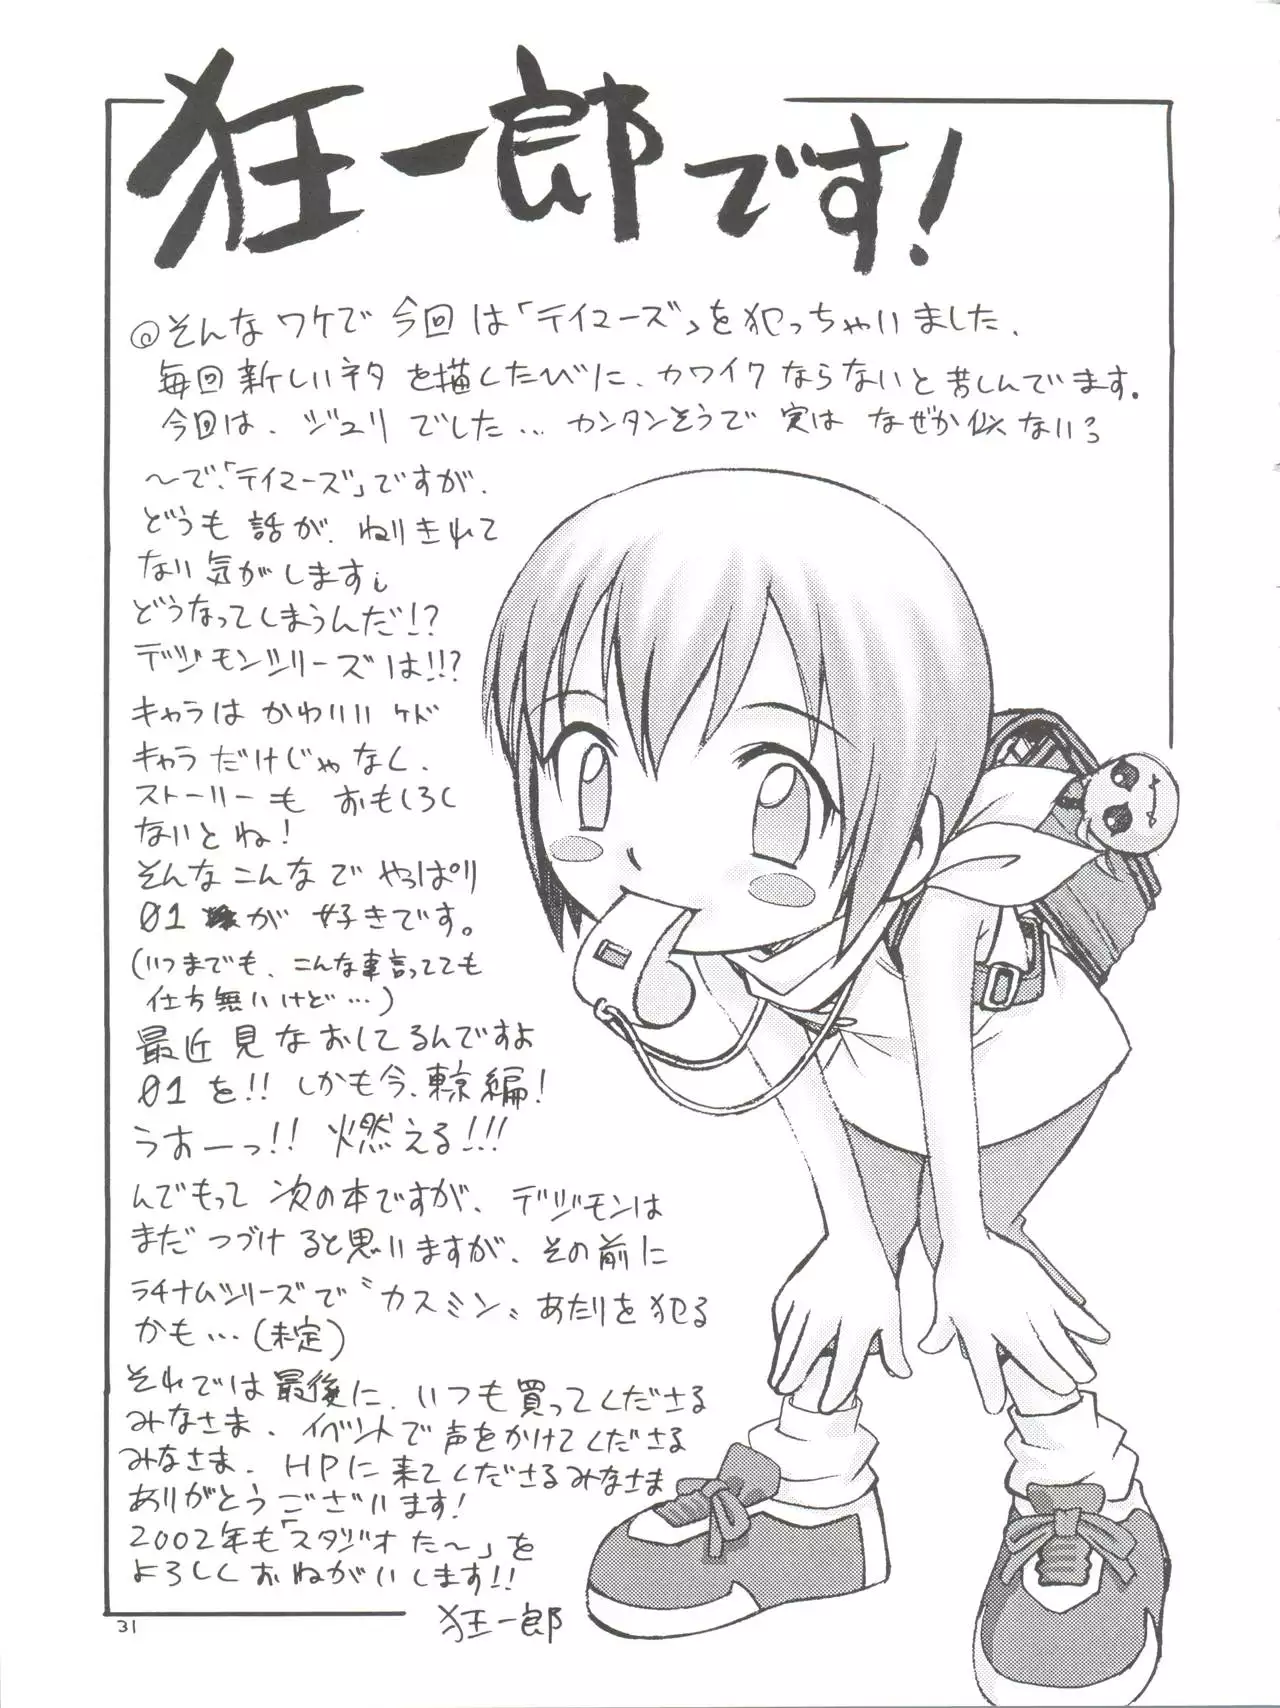 狂一郎です!
@そんなワケで今回は「テイマーズ」を犯っちゃいました.
毎回新しいネタを描くたびに、カワイクならないと苦しんでます.
今回は、ジュリでした… カンタンそうで実はなぜか似ないいろ
〜で、「テイマーズ」ですが、
どうも話が、ねりきれて
ない気がします¡
どうなってしまうんだ!?
デジモンシリーズは!!?
キャラはかわいいケド
キャラだけじゃなく、
ストーリーもおもしろく
ないとね!
そんなこんなでやっぱり
01が好きです。
(いつまでも、こんな事言ってても
仕方無いけど…)
最近見なおしてるんですよ
01を!! しかも今、東京編!
うおーっ!! 燃える!!!
んでもって次の本ですが、デジモンは
まだつづけると思いますが、その前に
ラチナムシリーズで〝カスミン〟あたりを犯る
かも…(未定)
それでは最後に、いつも買ってくださる
みなさま、イベントで声をかけてくださる
みなさま、HPに来てくださるみなさま
ありがとうございます!
2002年も「スタジオた〜」を
よろしくおねがいします!!
狂一郎
31